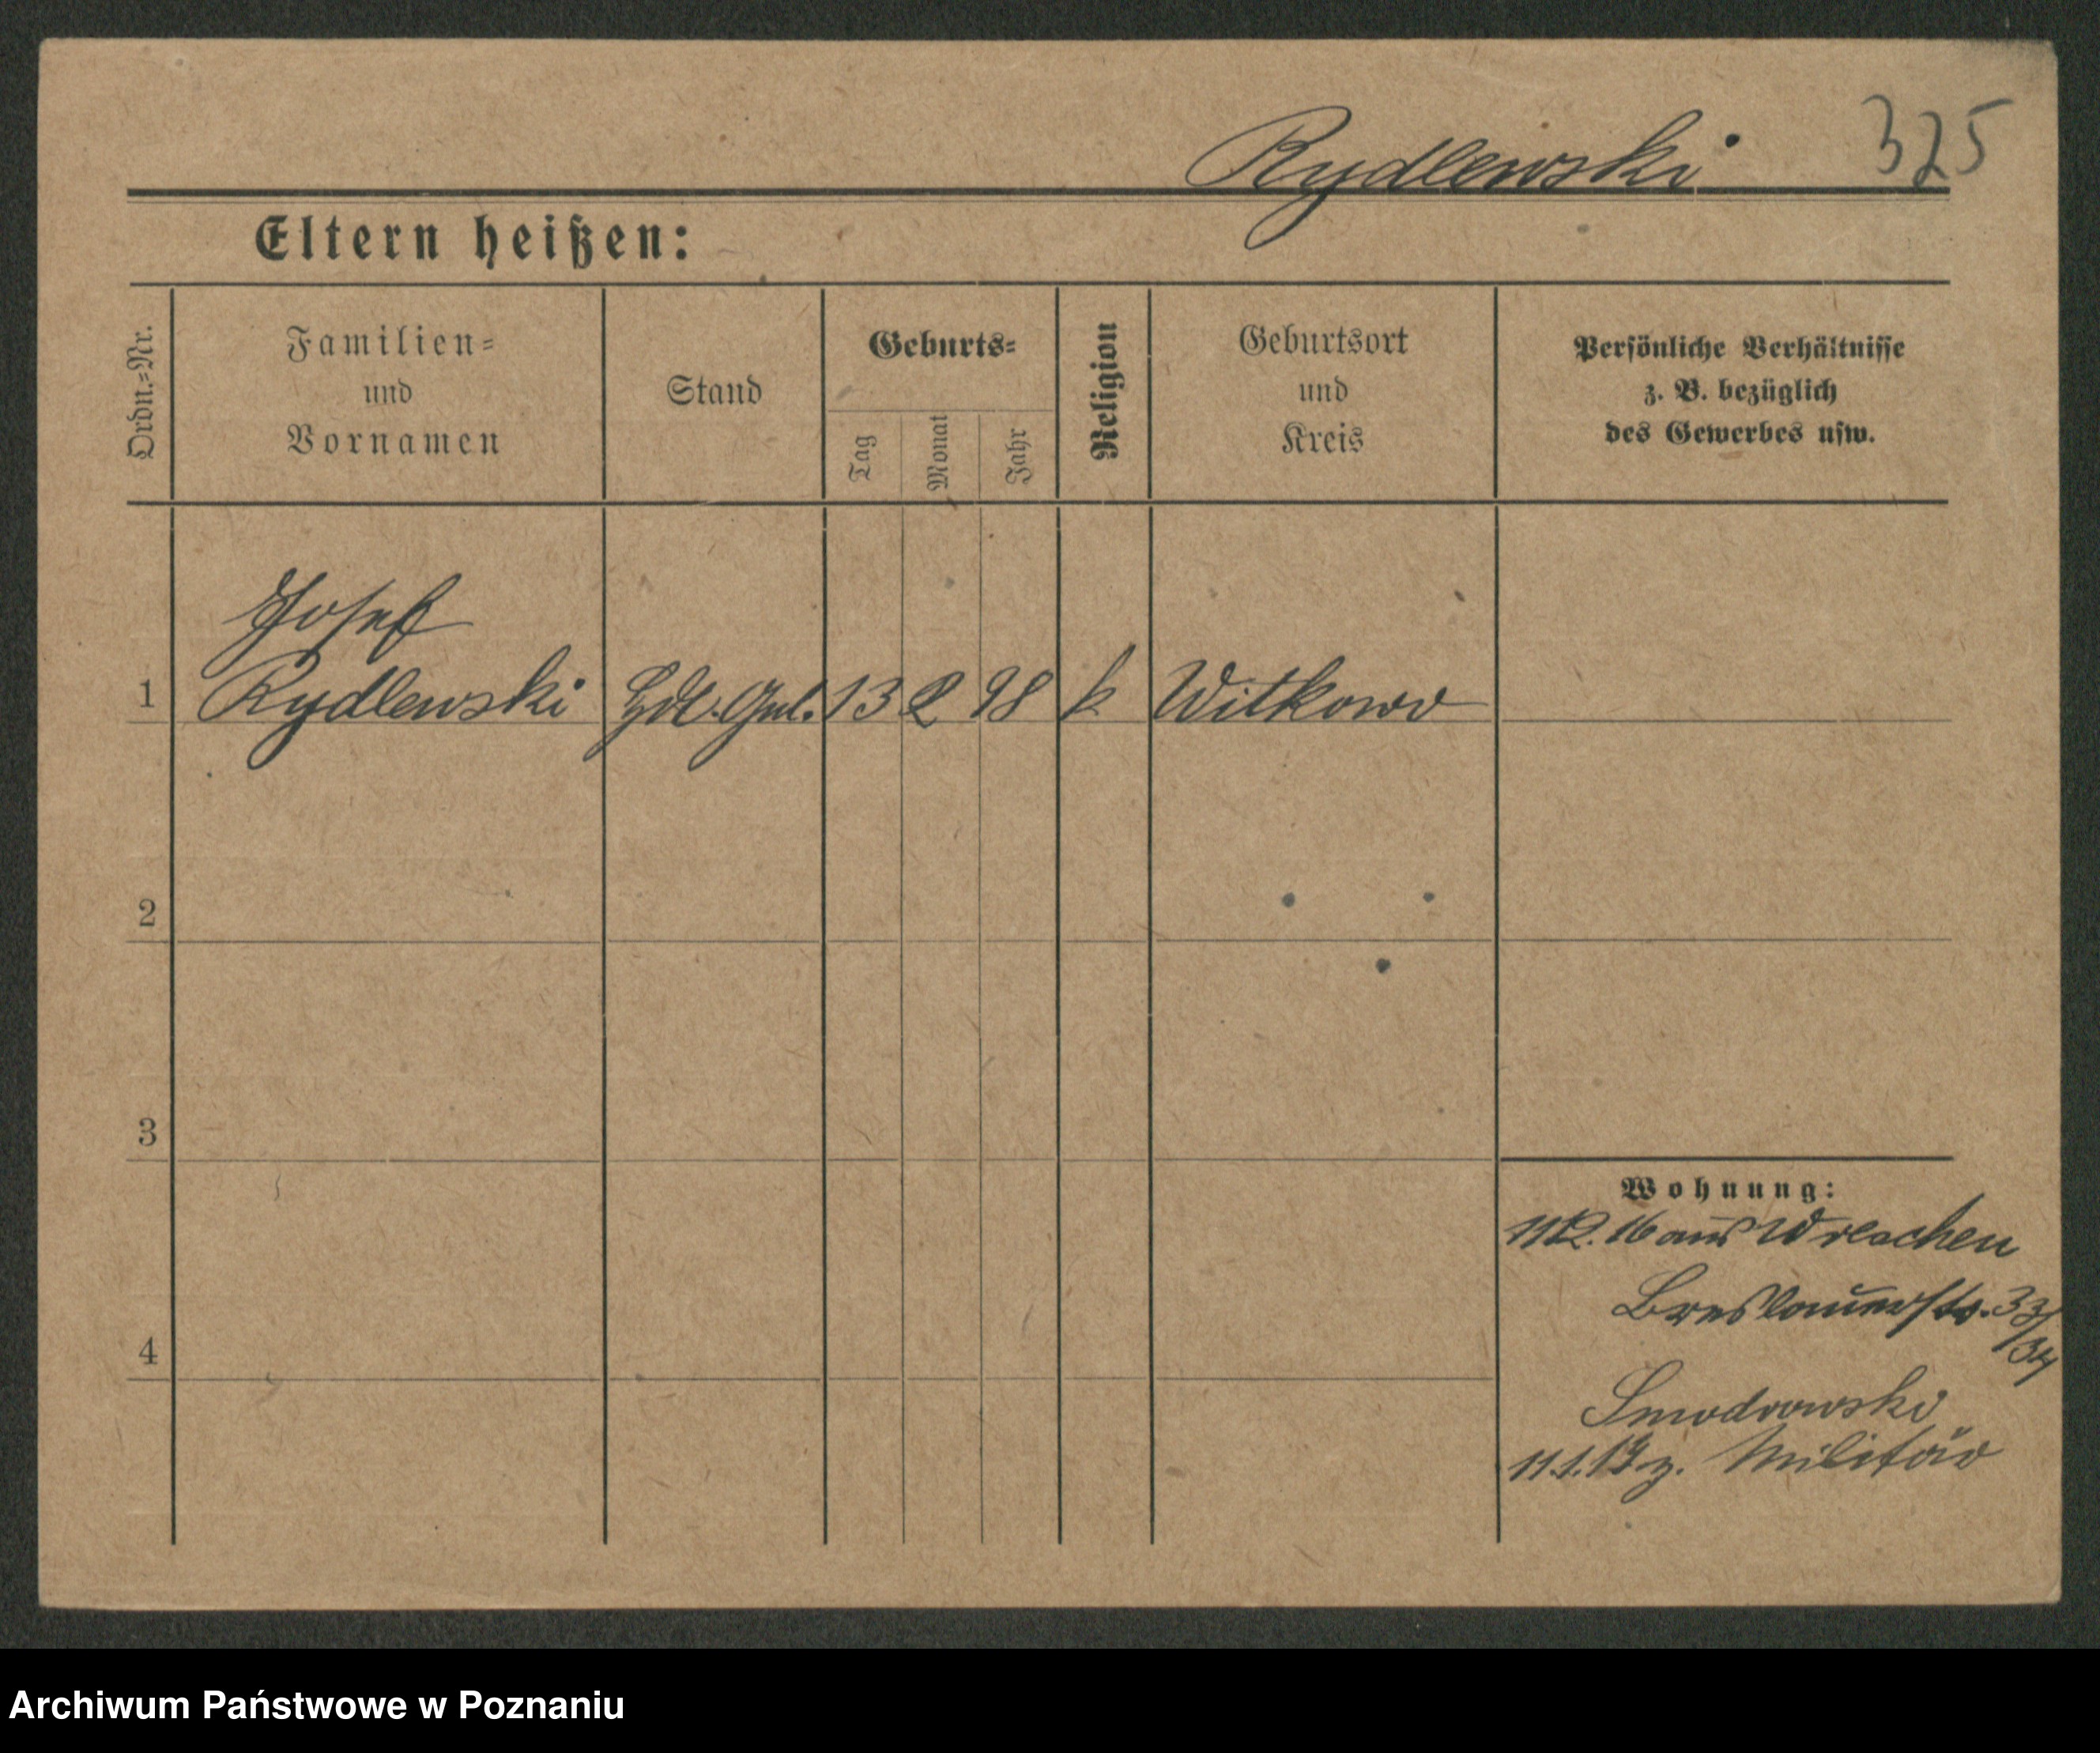 Rydlewski 325
Eltern heißen:
Ordn.=Nr.
Familien=
und
Vornamen
Stand
Geburts=
Tag
Monat
Jahr
Religion
Geburtsort
und
Kreis
Persönliche Verhältnisse
z. B. bezüglich
des Gewerbes usw.
Josef
1 Rydlewski Hdl. Geh. 13 2 98 k Witkowo
2
3
4
Wohnung:
16 aus Wreschen
Breslauerstr. 33/
34
Smodrowski
z. Militär
Archiwum Państwowe w Poznaniu